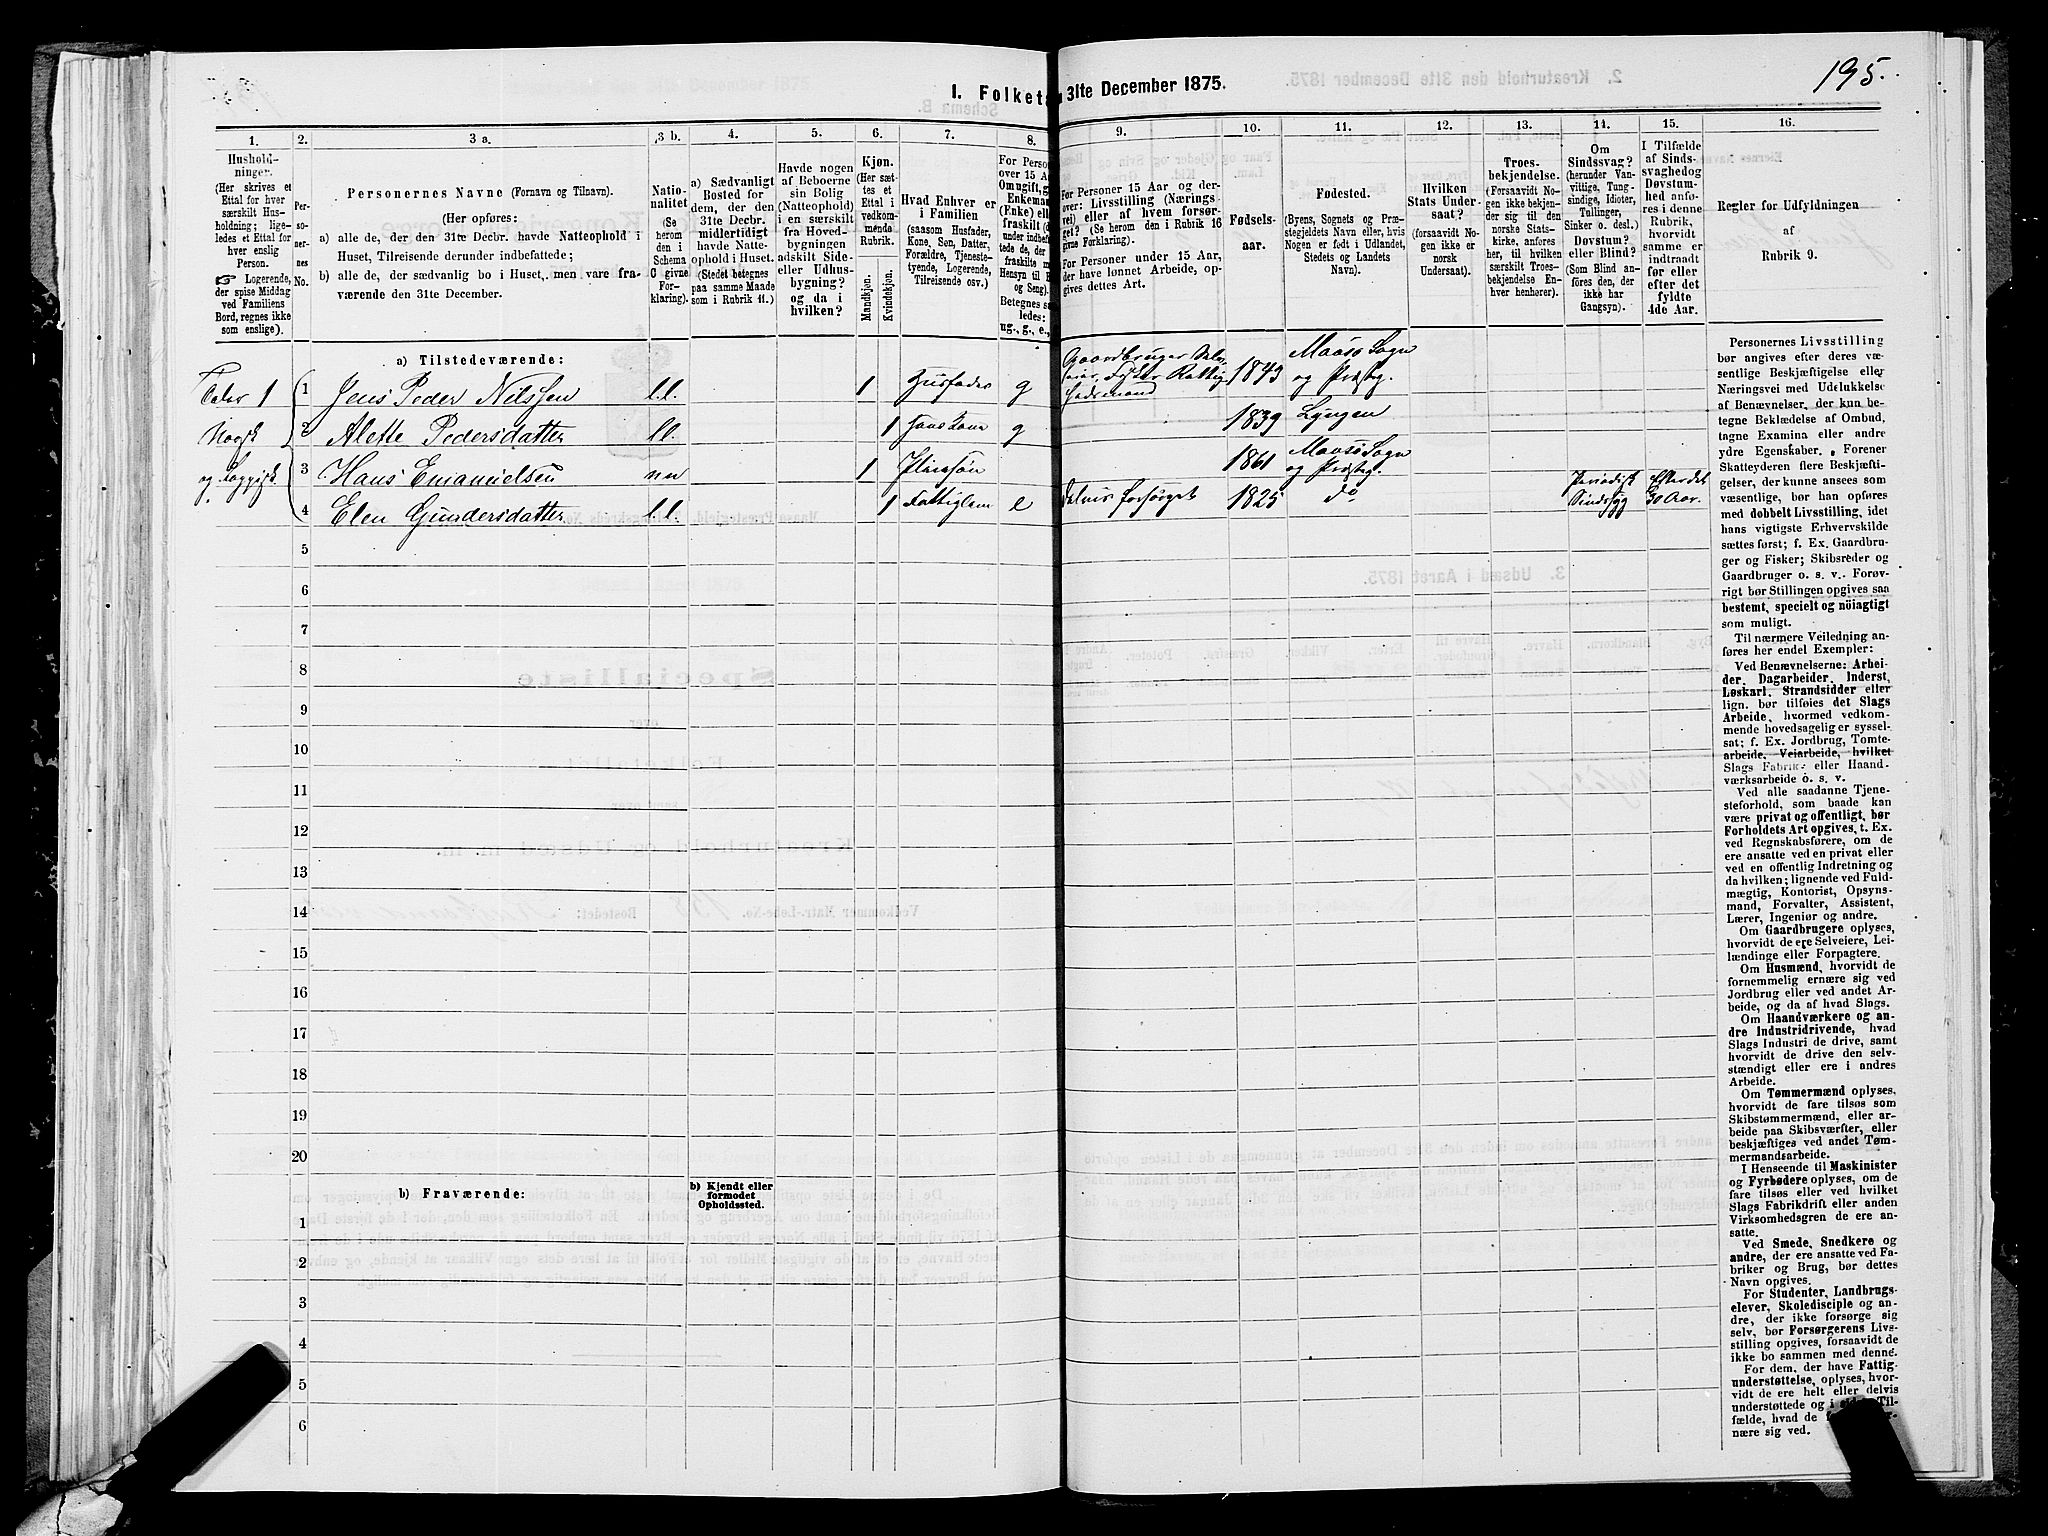 195.
I. Folketæ 31te December 1875.
1. 2. 3 a. 3 b. 4. 5. 6. 7. 8. 9. 10. 11. 12. 13. 14. 15. 16.
Hushold-
ninger.
(Her skrives et
Ettal for hver
særskilt Hus-
holdning; lige-
ledes et Ettal for
hver enslig
Person.
☞ Logerende,
der spise Middag
ved Familiens
Bord, regnes ikke
som enslige).
Per-
soner-
nes
No.
Personernes Navne (Fornavn og Tilnavn).
(Her opføres:
a) alle de, der den 31te Decbr. havde Natteophold i
Huset, Tilreisende derunder indbefattede;
b) alle de, der sædvanlig bo i Huset, men vare fra-
værende den 31te December.
Natio-
nalitet
(Se
herom
den i
Schema
C givne
For-
klaring).
a) Sædvanligt
Bosted for
dem, der den
31te Decbr.
midlertidigt
havde Natte-
ophold i Huset.
(Stedet betegnes
paa samme Maade
som i Rubrik 11.)
Havde nogen
af Beboerne
sin Bolig
(Natteophold)
i en særskilt
fra Hoved-
bygningen
adskilt Side-
eller Udhus-
bygning?
og da i
hvilken?
Kjøn.
(Her sæt-
tes et
Ettal i
vedkom-
mende
Rubrik.
Mandkjøn.
Kvindekjøn.
Hvad Enhver er
i Familien
(saasom Husfader,
Kone, Søn, Datter,
Forældre, Tjeneste-
tyende, Logerende,
Tilreisende osv.)
For Person
over 15 Aa
Om ugift, g
Enkeman
(Enke) ell
fraskilt (d
under indbefa
tede de, der
fraskilte m
Hensyn til B
og Seng).
Betegnes sa
ledes:
ug., g., e.,
For Personer 15 Aar og der-
over: Livsstilling (Nærings
vei) eller af hvem forsør-
get? (Se herom den i Rubrik 16
givne Forklaring).
For Personer under 15 Aar,
der have lønnet Arbeide, op-
gives dettes Art.
Fødsels-
aar.
Fødested.
(Byens, Sognets og Præ-
stegjeldets Navn eller, hvis
Nogen er født i Udlandet,
Stedets og Landets
Navn).
Hvilken
Stats Under-
saat?
(forsaavidt No-
gen ikke er
norsk
Undersaat).
Troes-
bekjendelse.
(Forsaavidt No-
gen ikke bekjen-
der sig til den
norske Stats-
kirke, anføres
her, til hvilken
særskilt Troes-
bekjendelse En-
hver henhører).
Om
Sindssvag?
(herunder Van-
vittige, Tung-
sindige, Idioter,
Tullinger,
Sinker o. desl.)
Døvstum?
eller Blind?
(Som Blind an-
føres den, der
ikke har
Gangsyn).
I Tilfælde
af Sinds-
svaghed og
Døvstum-
hed anfø-
res i denne
Rubrik,
hvorvidt
samme er
indtraadt
før eller
efter det
fyldte
4de Aar.
Regler for Udfyldningen
af
Rubrik 9.
a) Tilstedeværende:
1 1 Jens Peder Nilssen l.l. 1 Husfader g 1843 Maasø Sogn og Præsteg.
2 Alette Pedersdatter l.l. 1 hans Kone g 1839 Lyngen
3 Hans Emanuelsen nn 1 Pleiesøn 1861 Maasø Sogn og Præsteg.
4 Elen Gundersdatter l.l. 1 e delvis forsørget 1825 do Periodisk Sindssyg Efter det 30 Aar.
5
6
7
8
9
10
11
12
13
14
15
16
17
18
19
20
b) Fraværende:
b) Kjendt eller
formodet
Opholdssted.
1
2
3
4
5
6
Personernes Livsstilling
bør angives efter deres væ-
sentlige Beskjæftigelse eller
Næringsvei med Udelukkelse
af Benævnelser, der kun be-
tegne Beklædelse af Ombud,
tagne Examina eller andre
ydre Egenskaber. Forener
Skatteyderen flere Beskjæfti-
gelser, der kunne ansees som
væsentlige, bør han opføres
med dobbelt Livsstilling, idet
hans vigtigste Erhvervskilde
sættes først; f. Ex. Gaardbru-
ger og Fisker; Skibsreder og
Gaardbruger o. s. v. Forøv-
rigt bør Stillingen opgives saa
bestemt, specielt og nöiagtigt
som muligt.
Til nærmere Veiledning an-
føres her endel Exempler:
Ved Benævnelserne: Arbei-
der, Dagarbeider, Inderst,
Løskarl, Strandsidder eller
lign. bør tilføies det Slags
Arbeide, hvormed vedkom-
mende hovedsagelig er syssel-
sat; f. Ex. Jordbrug, Tomte-
arbeide, Veiarbeide, hvilket
Slags Fabrik- eller Haand-
værksarbeide o. s. v.
Ved alle saadanne Tjene-
steforhold, som baade kan
være privat og offentligt, bør
Forholdets Art opgives, t. Ex.
ved Regnskabsførere, om de
ere ansatte ved en privat eller
ved en offentlig Indretning og
da hvilken; lignende ved Fuld-
mægtig, Kontorist, Opsyns-
mand, Forvalter, Assistent,
Lærer, Ingeniør og andre.
Om Gaardbrugere oplyses,
hvorvidt de ere Selveiere, Lei-
lændinge eller Forpagtere.
Om Husmænd, hvorvidt de
fornemmelig ernære sig ved
Jordbrug eller ved andet Ar-
beide, og da af hvad Slags.
Om Haandværkere og an-
dre Industridrivende, hvad
Slags Industri de drive, samt
hvorvidt de drive den selv-
stændigt eller ere i andres
Arbeide.
Om Tømmermænd oplyses,
hvorvidt de fare tilsøs som
Skibstømmermænd, eller ar-
beide paa Skibsværfter, eller
beskjæftiges ved andet Tøm-
mermandsarbeide.
I Henseende til Maskinister
og Fyrbødere oplyses, om de
fare tilsøs eller ved hvilket
Slags Fabrikdrift eller anden
Virksomhedsgren de ere an-
satte.
Ved Smede, Snedkere og
andre, der ere ansatte ved Fa-
briker og Brug, bør dettes
Navn opgives.
For Studenter, Landbrugs-
elever, Skoledisciple og an-
dre, der ikke forsørge sig
selv, bør Forsørgerens Livs-
stilling opgives, forsaavidt de
ikke bo sammen med denne.
For dem, der have Fattig-
understøttelse, oplyses, hvor-
vidt de ere helt eller delvis
understøttede og i Til-
fælde, hvad de
nære sig ved.